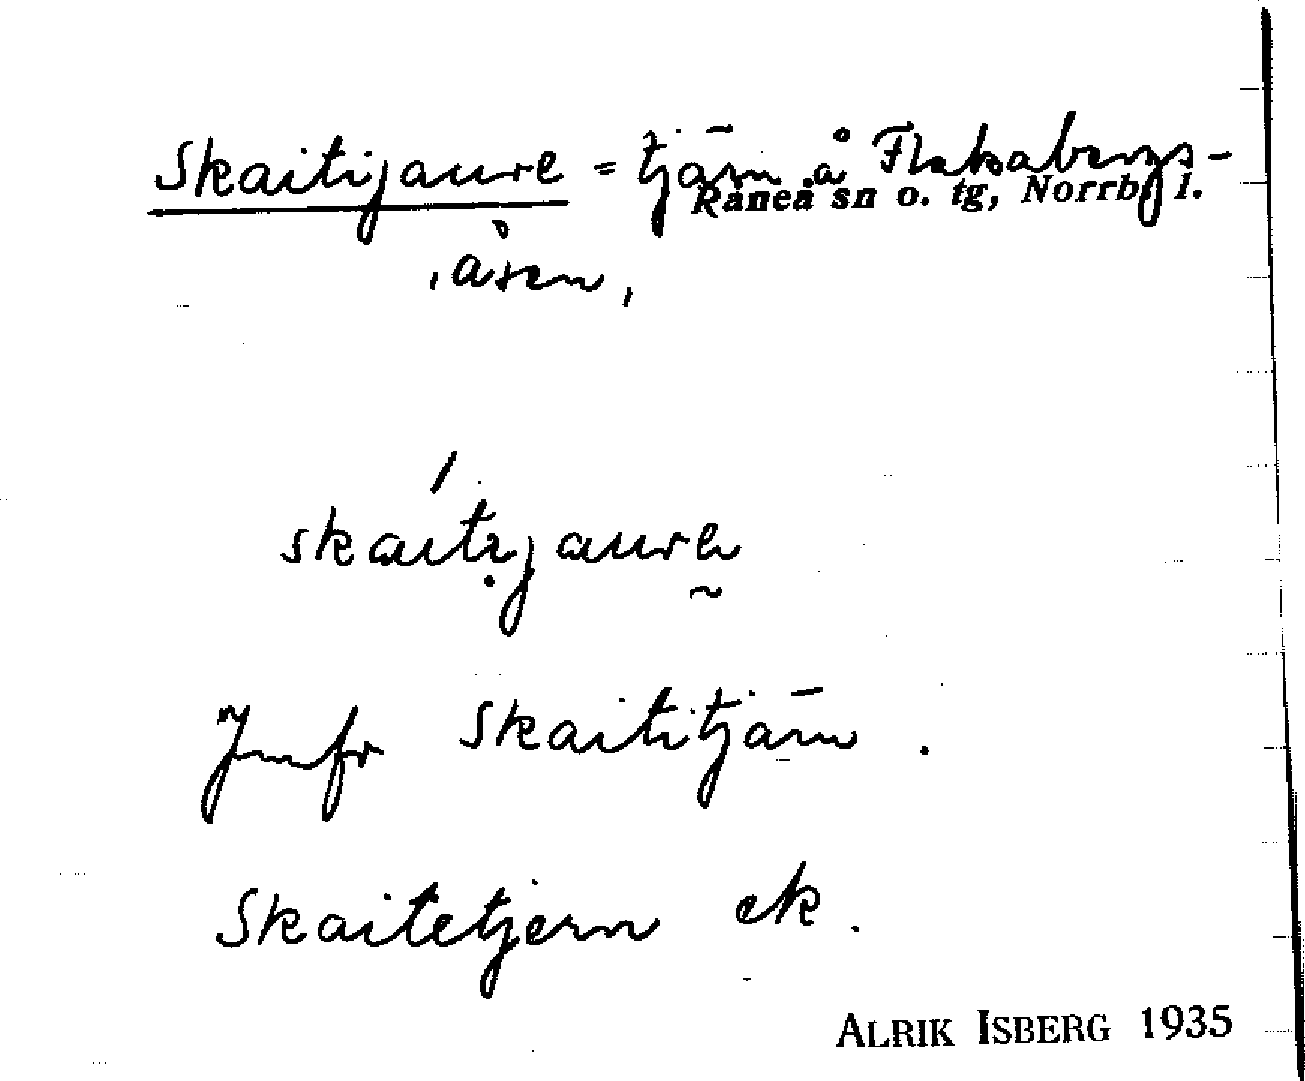 Skaitijaure = tjärn å Flakabergs-
Råneå sn o. tg, Norrb. l.
åsen,
skaitijaure
Jmfr Skaititjärn.
Skaitetjern ek.
ALRIK ISBERG 1935